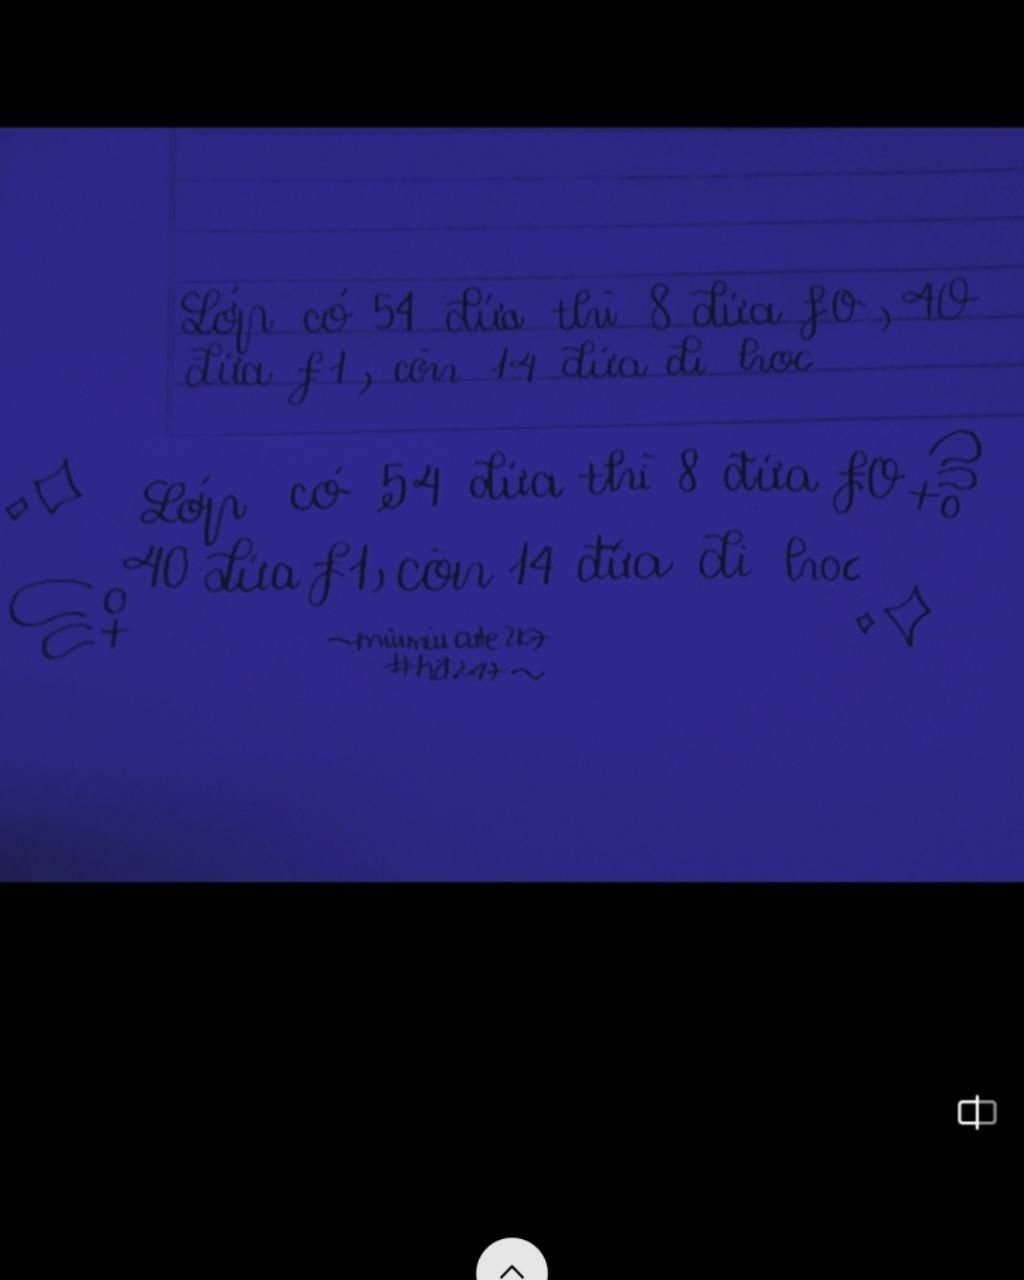 Lớp có 54 đứa thì 8 đứa f0, 40
đứa f1, còn 14 đứa đi học
Lớp có 54 đứa thì 8 đứa f0
40 đứa f1, còn 14 đứa đi học
~miumiu cute 2k7
~